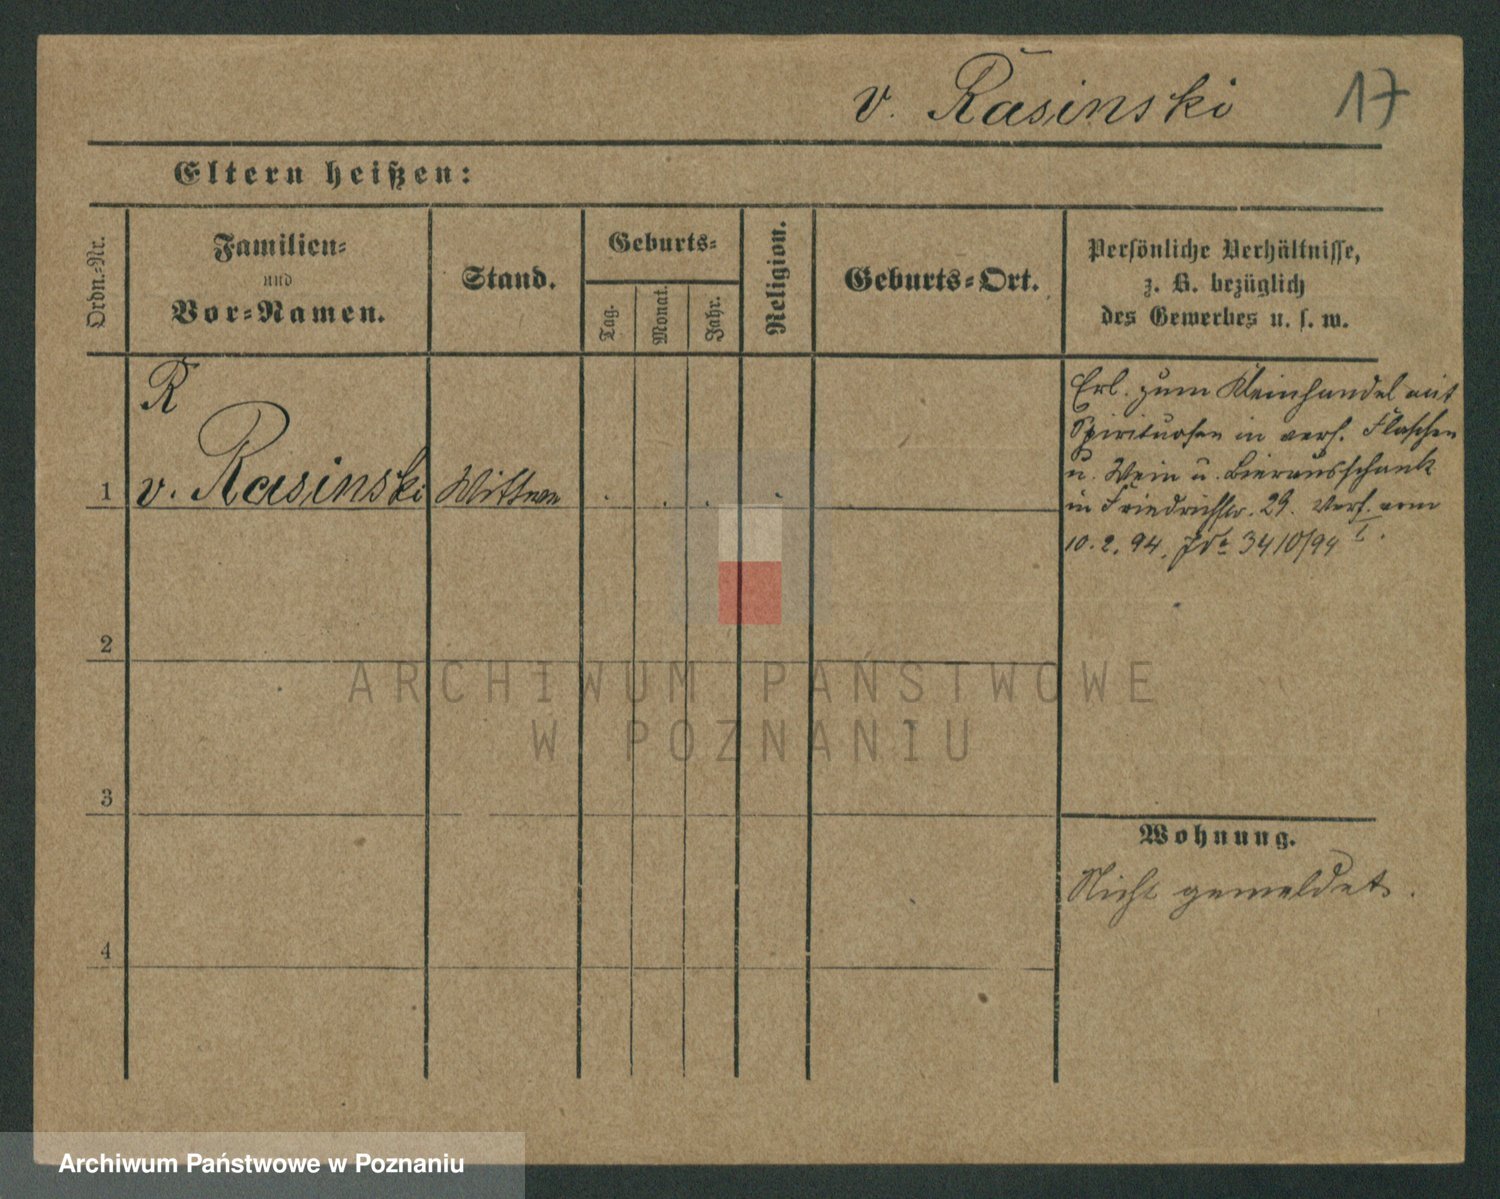 v. Rasinski 17
Eltern heißen:
Ordn.-Nr.
Familien-
und
Vor-Namen.
Stand.
Geburts-
Tag.
Monat.
Jahr.
Religion.
Geburts-Ort.
Persönliche Verhältnisse,
z. B. bezüglich
des Gewerbes u. s. w.
R
1 v. Rasinski Wittwe
Erl. zum Kleinhandel mit
Spirituosen in vers. Flaschen
u. Wein u. Bierausschank
in Friedrichstr. 29. Verf. vom
10.2.94. 3410/94 I.
2
3
4
Wohnung.
Nicht gemeldet.
ARCHIWUM PAŃSTWOWE
W POZNANIU
Archiwum Państwowe w Poznaniu